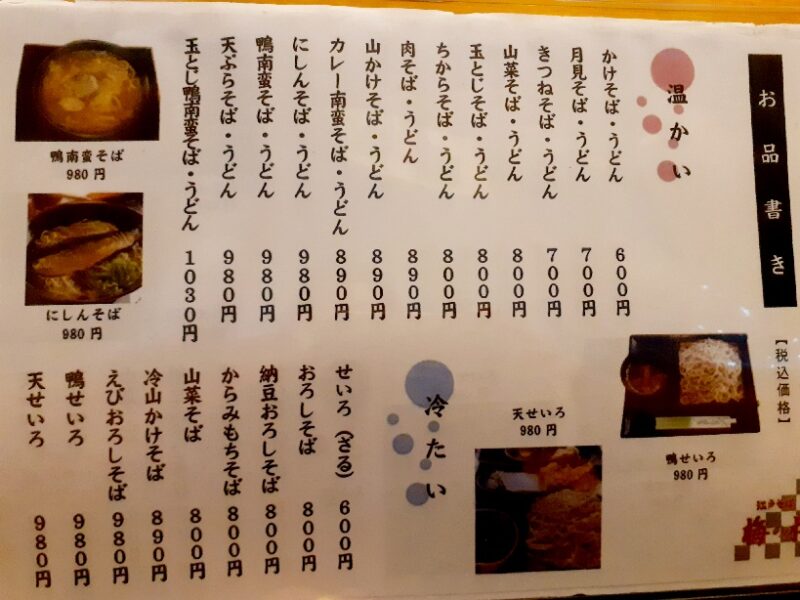 お品書き
【税込価格】
温かい
かけそば・うどん 600円
月見そば・うどん 700円
きつねそば・うどん 700円
山菜そば・うどん 800円
玉とじそば・うどん 800円
ちからそば・うどん 800円
肉そば・うどん 890円
山かけそば・うどん 890円
カレー南蛮そば・うどん 890円
にしんそば・うどん 980円
鴨南蛮そば・うどん 980円
天ぷらそば・うどん 980円
玉とじ鴨南蛮そば・うどん 1030円
鴨南蛮そば
980円
にしんそば
980円
鴨せいろ
980円
天せいろ
980円
冷たい
せいろ(ざる) 600円
おろしそば 800円
納豆おろしそば 800円
からみもちそば 800円
山菜そば 800円
冷山かけそば 890円
えびおろしそば 980円
鴨せいろ 980円
天せいろ 980円